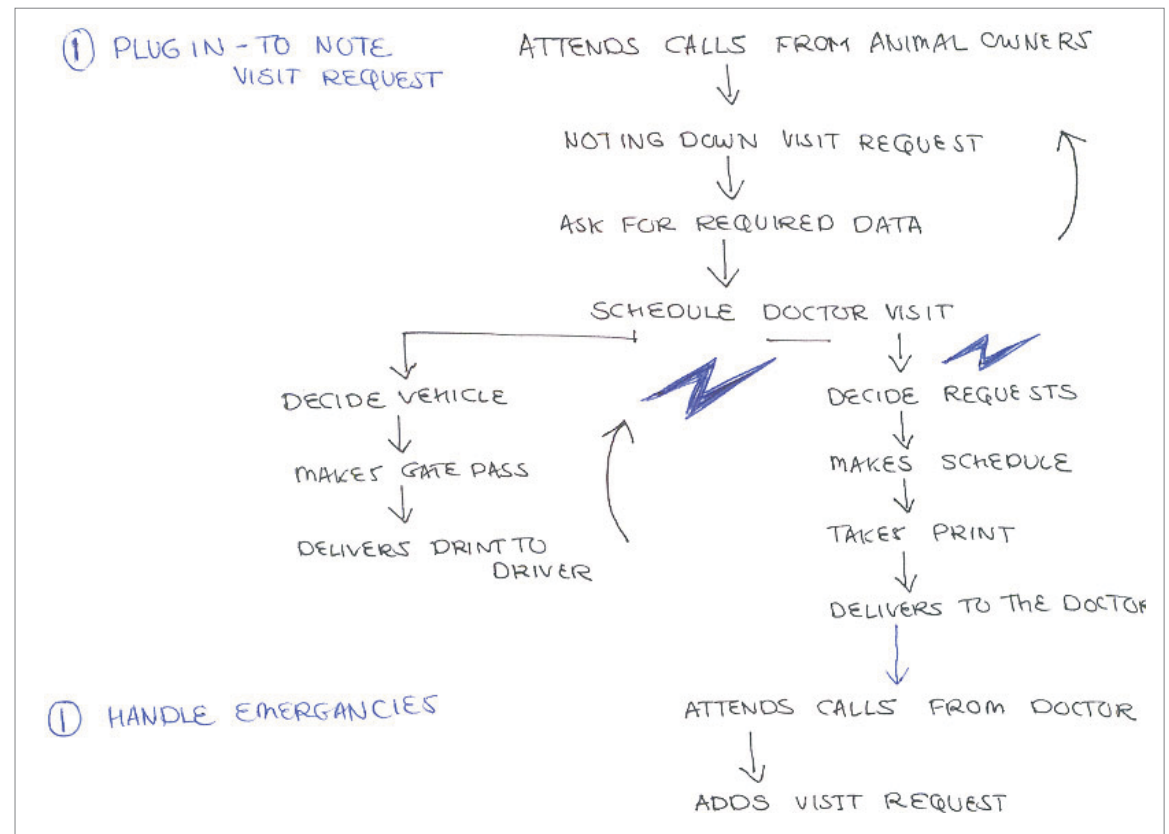 ① PLUG IN - TO NOTE
VISIT REQUEST
ATTENDS CALLS FROM ANIMAL OWNERS
NOTING DOWN VISIT REQUEST
ASK FOR REQUIRED DATA
SCHEDULE DOCTOR VISIT
DECIDE VEHICLE
MAKES GATE PASS
DELIVERS PRINT TO
DRIVER
DECIDE REQUESTS
MAKES SCHEDULE
TAKES PRINT
DELIVERS TO THE DOCTOR
① HANDLE EMERGANCIES
ATTENDS CALLS FROM DOCTOR
ADDS VISIT REQUEST